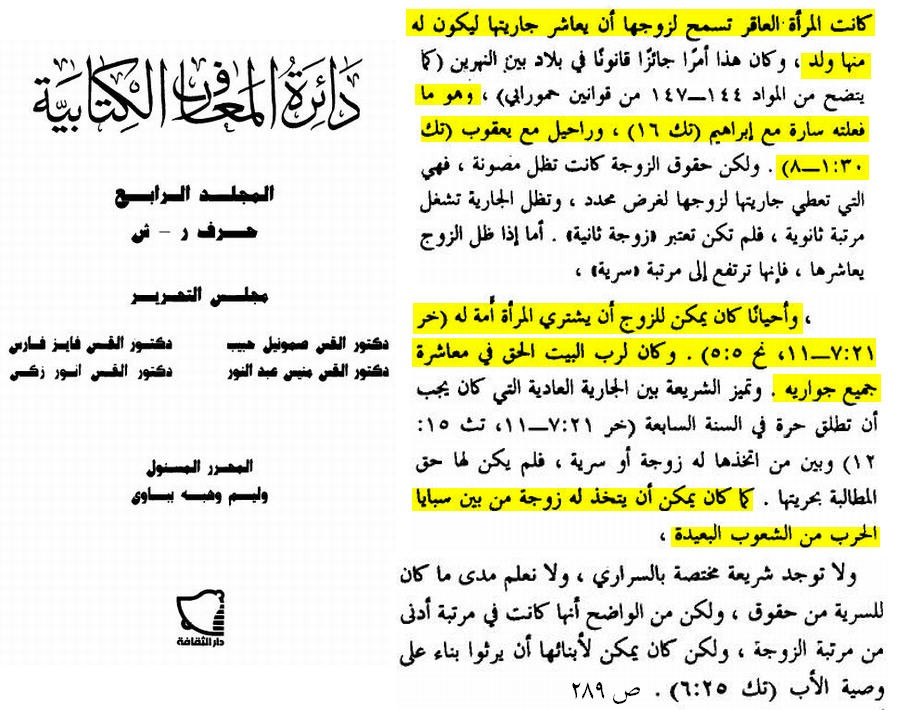 دائرة المعارف الكتابية
المجلد الرابع
حرف ر – ش
مجلس التحرير
دكتور القس صموئيل حبيب
دكتور القس فايز فارس
دكتور القس منيس عبد النور
دكتور القس انور زكى
المحرر المسئول
وليم وهبه بباوى
دار الثقافة
كانت المرأة العاقر تسمح لزوجها أن يعاشر جاريتها ليكون له
منها ولد ، وكان هذا أمرًا جائزًا قانونًا في بلاد بين النهرين (كما
يتضح من المواد ١٤٤—١٤٧ من قوانين حمورابي) ، وهو ما
فعلته سارة مع إبراهيم (تك ١٦) ، وراحيل مع يعقوب (تك
٣٠:١—٨) . ولكن حقوق الزوجة كانت تظل مصونة ، فهي
التي تعطي جاريتها لزوجها لغرض محدد ، وتظل الجارية تشغل
مرتبة ثانوية ، فلم تكن تعتبر «زوجة ثانية» . أما إذا ظل الزوج
يعاشرها ، فإنها ترتفع إلى مرتبة «سرية» ،
، وأحيانًا كان يمكن للزوج أن يشتري المرأة أمة له (خر
٢١:٧—١١، نح ٥:٥) . وكان لرب البيت الحق في معاشرة
جميع جواريه . وتميز الشريعة بين الجارية العادية التي كان يجب
أن تطلق حرة في السنة السابعة (خر ٢١:٧—١١، تث ١٥:
١٢) وبين من اتخذها له زوجة أو سرية ، فلم يكن لها حق
المطالبة بحريتها . كما كان يمكن أن يتخذ له زوجة من بين سبايا
الحرب من الشعوب البعيدة ،
ولا توجد شريعة مختصة بالسراري ، ولا نعلم مدى ما كان
للسرية من حقوق ، ولكن من الواضح أنها كانت في مرتبة أدنى
من مرتبة الزوجة ، ولكن كان يمكن لأبنائها أن يرثوا بناء على
وصية الأب (تك ٢٥:٦) . ص ٢٨٩